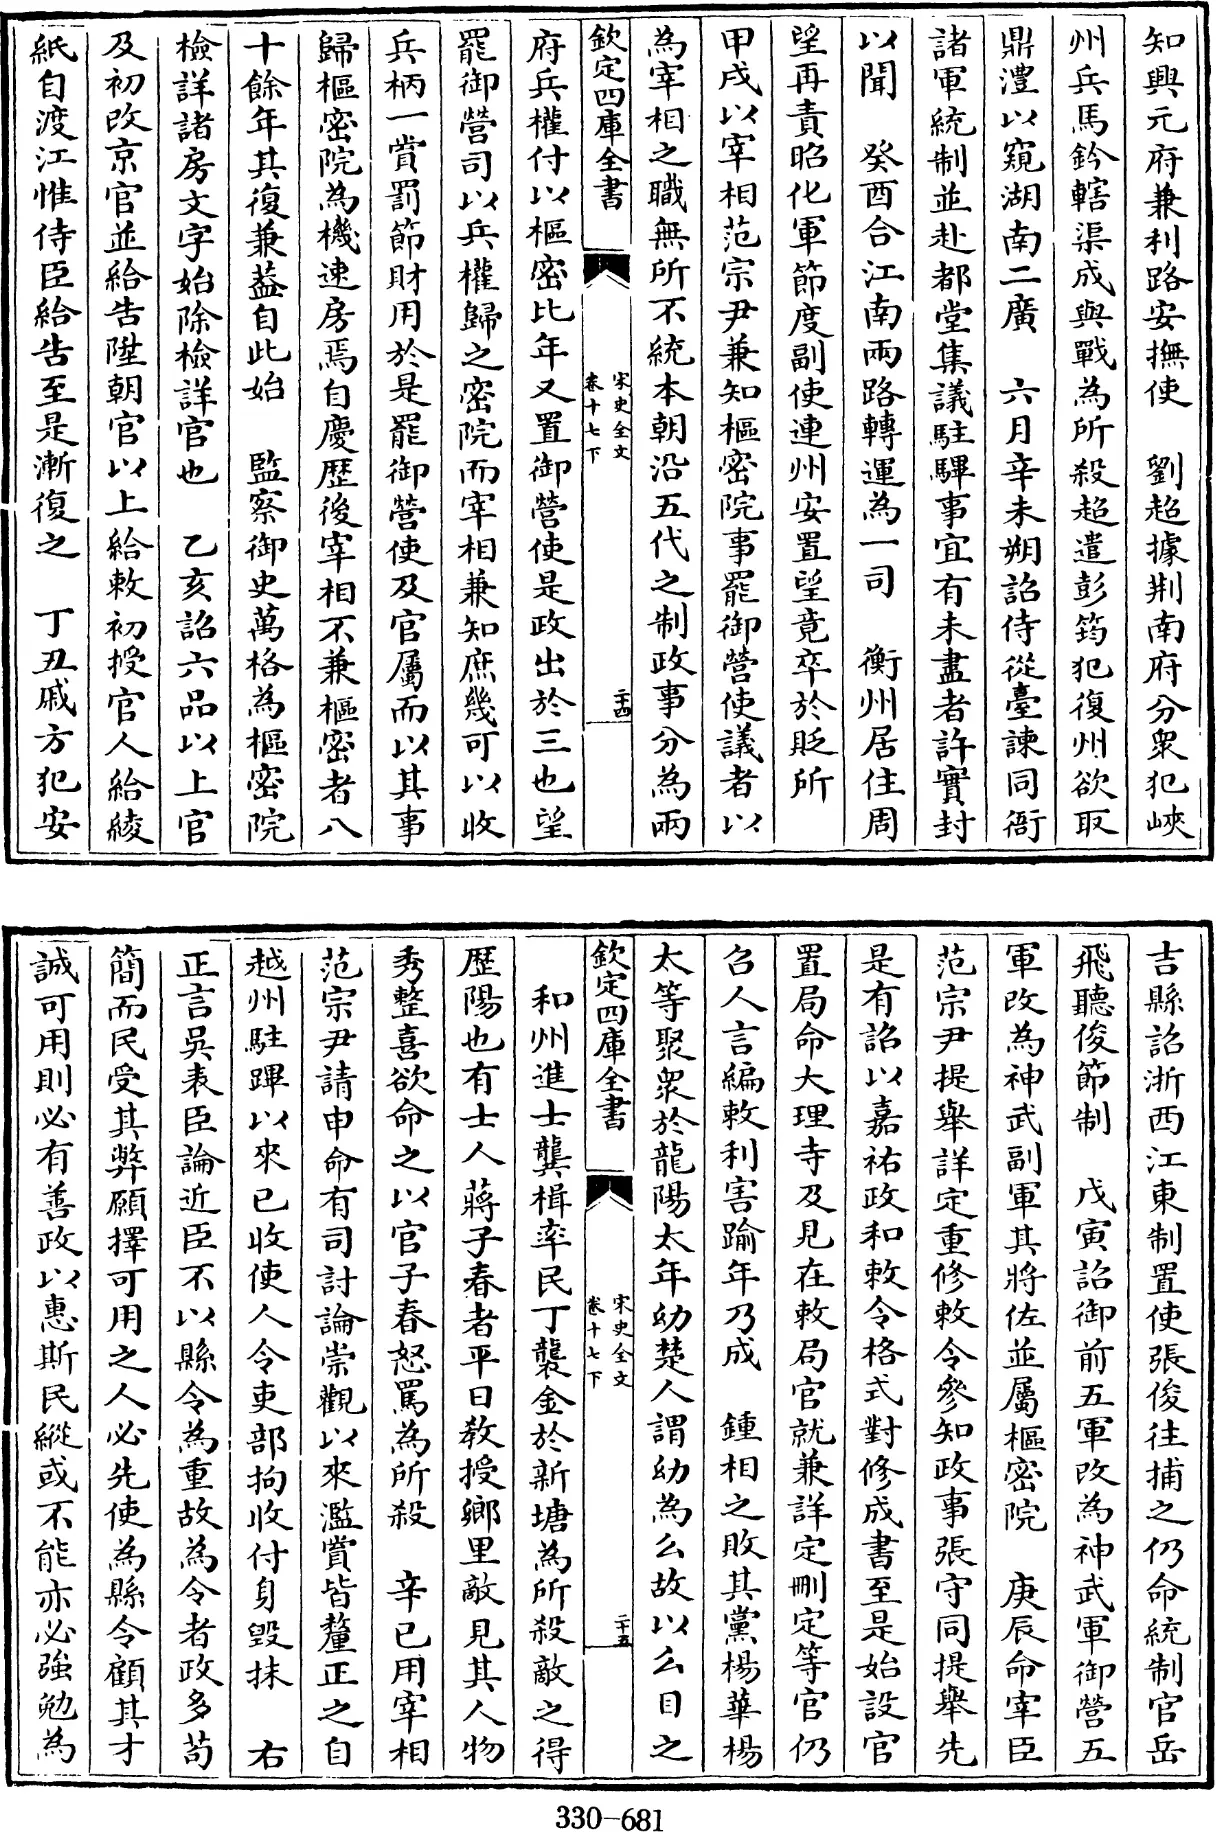 知興元府兼利路安撫使　劉超據荆南府分衆犯峽
州兵馬鈐轄渠成與戰為所殺超遣彭筠犯復州欲取
鼎澧以窺湖南二廣　六月辛未朔詔侍從臺諫同衙
諸軍統制並赴都堂集議駐驆事宜有未盡者許實封
以聞　癸酉合江南兩路轉運為一司　衡州居住周
望再責昭化軍節度副使連州安置望竟卒於貶所
甲戌以宰相范宗尹兼知樞密院事罷御營使議者以
為宰相之職無所不統本朝沿五代之制政事分為兩
欽定四庫全書
宋史全文
卷十七下
二十四
府兵權付以樞密比年又置御營使是政出於三也望
罷御營司以兵權歸之密院而宰相兼知庶幾可以收
兵柄一賞罰節財用於是罷御營使及官屬而以其事
歸樞密院為機速房焉自慶歴後宰相不兼樞密者八
十餘年其復兼葢自此始　監察御史萬格為樞密院
檢詳諸房文字始除檢詳官也　乙亥詔六品以上官
及初改京官並給告陞朝官以上給敕初授官人給綾
紙自渡江惟侍臣給告至是漸復之　丁丑戚方犯安
吉縣詔浙西江東制置使張俊往捕之仍命統制官岳
飛聽俊節制　戊寅詔御前五軍改為神武軍御營五
軍改為神武副軍其將佐並屬樞密院　庚辰命宰臣
范宗尹提舉詳定重修敕令參知政事張守同提舉先
是有詔以嘉祐政和敕令格式對修成書至是始設官
置局命大理寺及見在敕局官就兼詳定刪定等官仍
召人言編敕利害踰年乃成　鍾相之敗其黨楊華楊
太等聚衆於龍陽太年幼楚人謂幼為么故以么目之
欽定四庫全書
宋史全文
卷十七下
二十五
和州進士龔楫率民丁襲金於新塘為所殺敵之得
歴陽也有士人蔣子春者平日教授鄉里敵見其人物
秀整喜欲命之以官子春怒罵為所殺　辛巳用宰相
范宗尹請申命有司討論崇觀以來濫賞皆釐正之自
越州駐蹕以來已收使人令吏部拘收付身毀抹　右
正言吳表臣論近臣不以縣令為重故為令者政多苟
簡而民受其弊願擇可用之人必先使為縣令顧其才
誠可用則必有善政以惠斯民縱或不能亦必強勉為
330-681